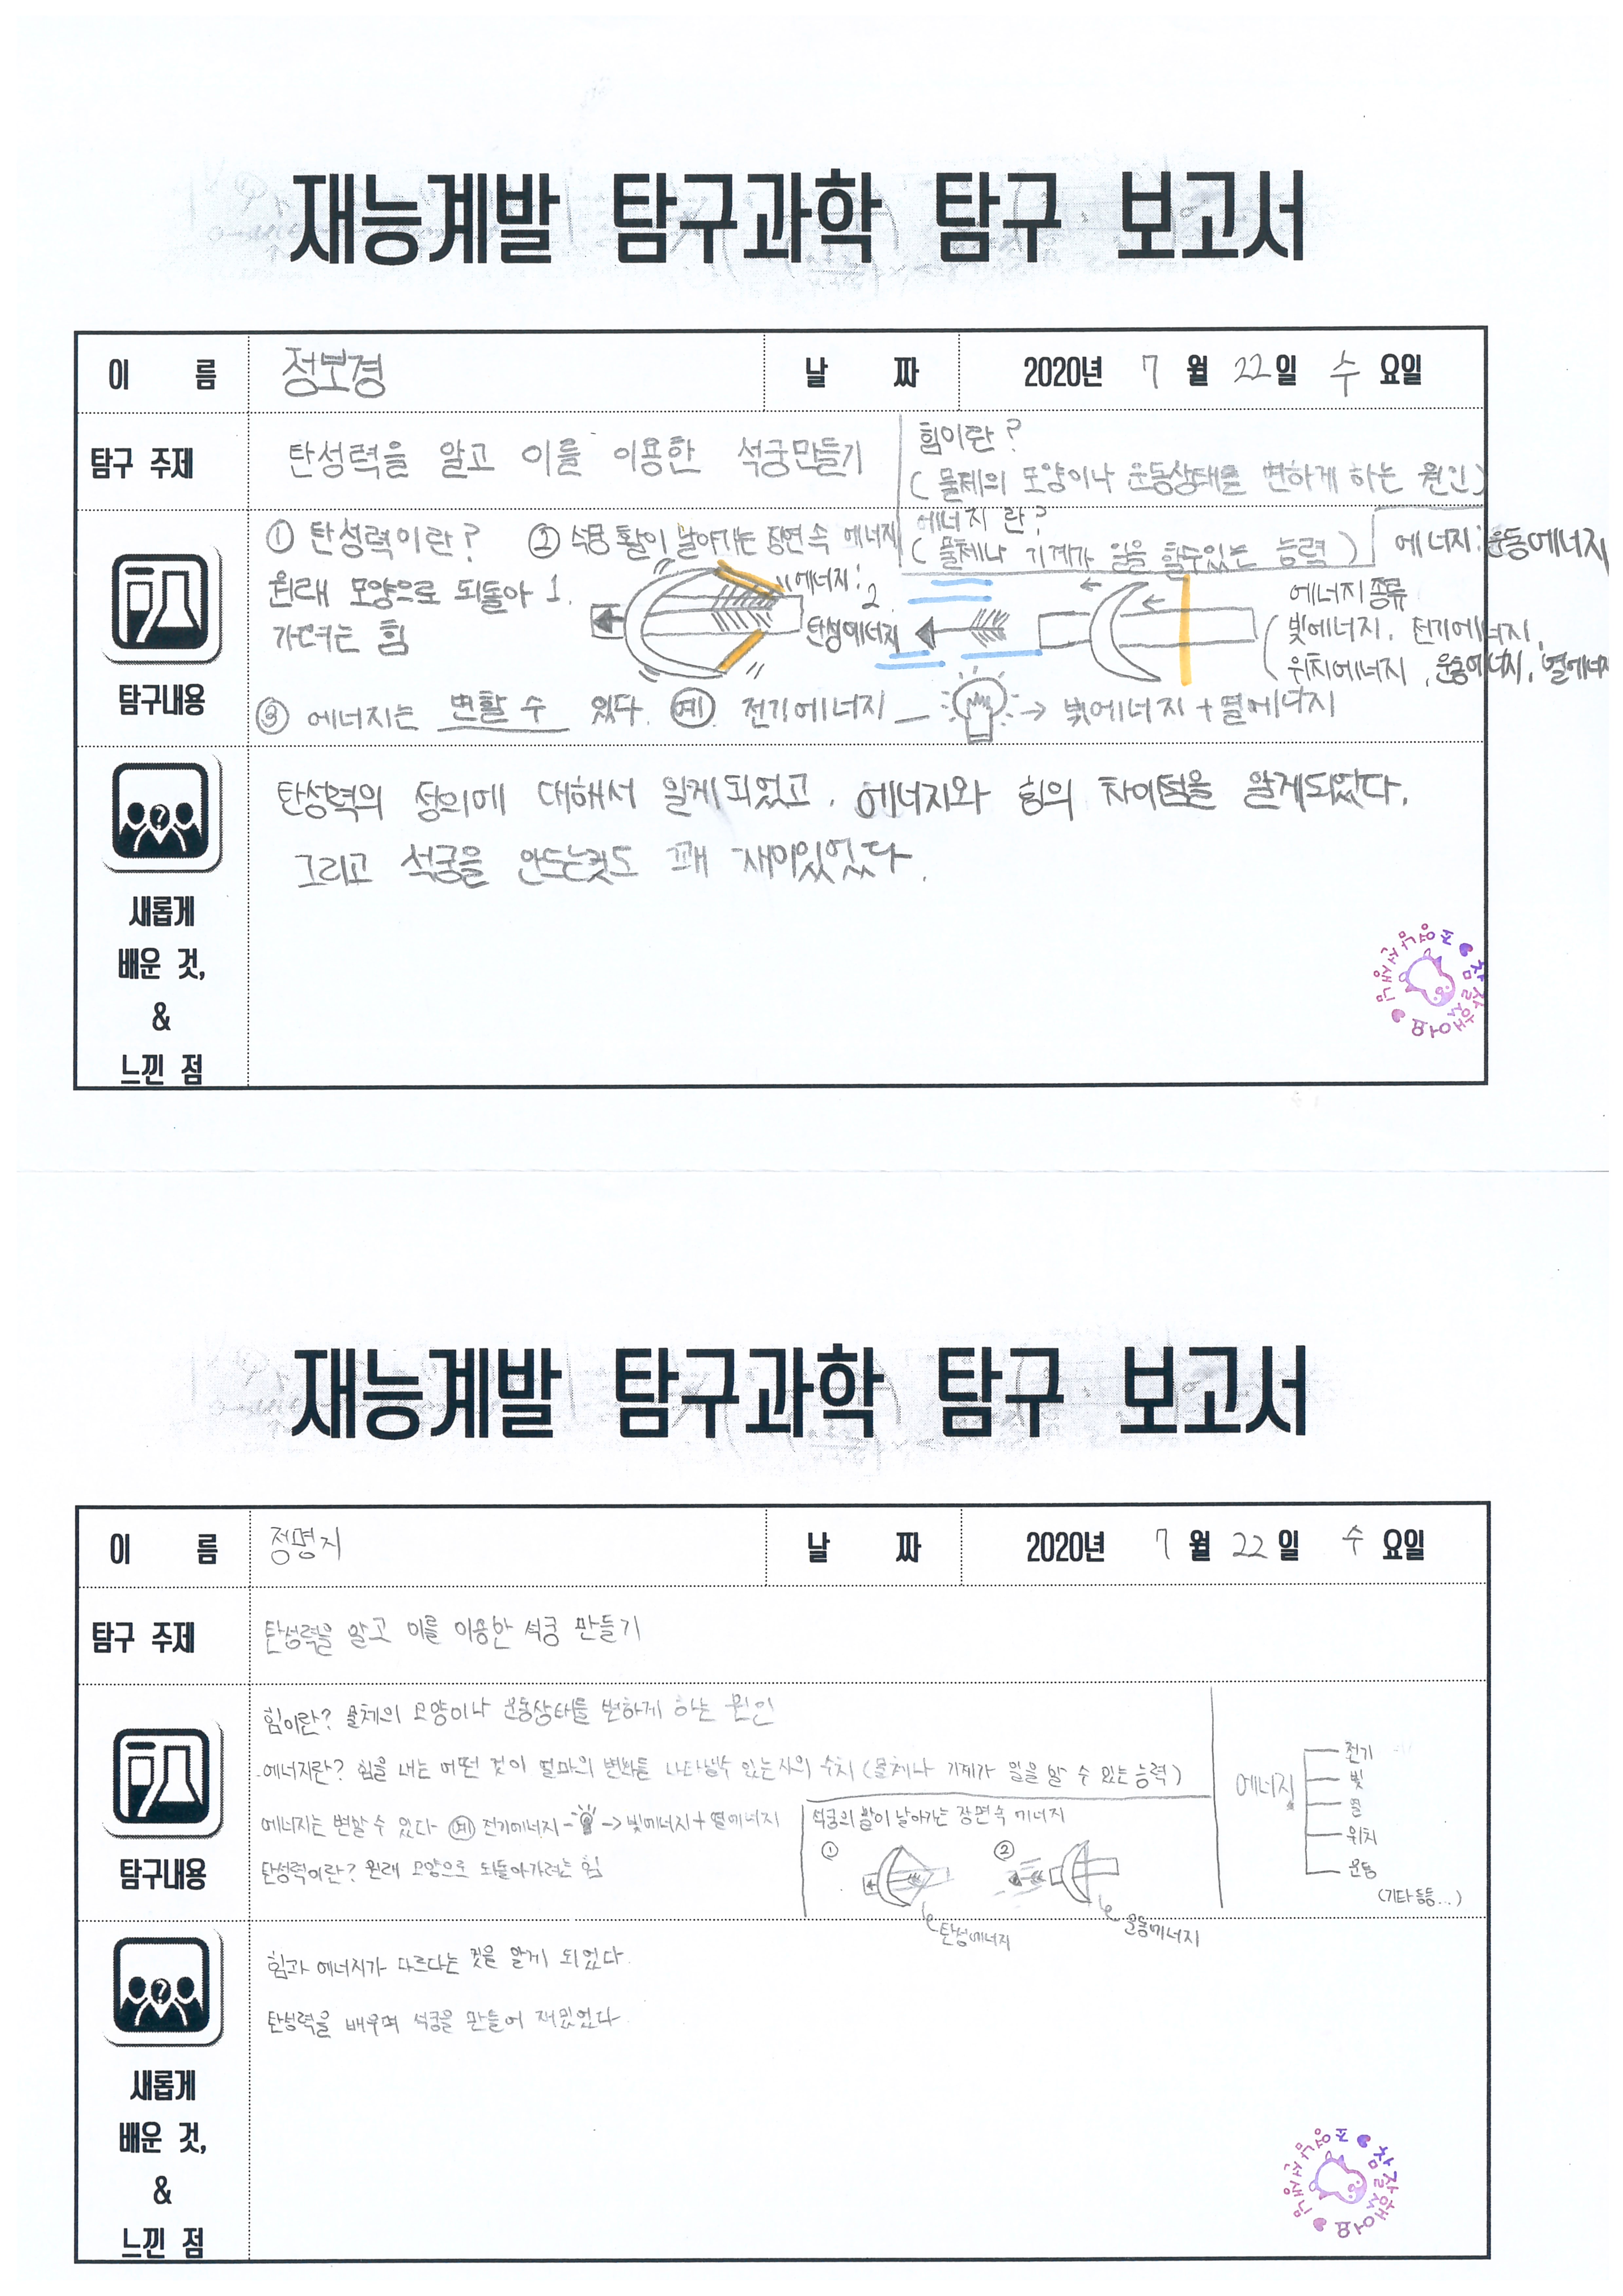 재능계발 탐구과학 탐구 보고서
이 름 정보경 날 짜 2020년 7월 22일 수요일
탐구 주제 탄성력을 알고 이를 이용한 석궁만들기
힘이란?
(물체의 모양이나 운동상태를 변하게 하는 원인)
에너지란?
(물체나 기계가 일을 할수있는 능력)
탐구내용
① 탄성력이란?
원래 모양으로 되돌아
가려는 힘
② 석궁 활이 날아가는 장면 속 에너지
1.
에너지:
탄성에너지
2
에너지: 운동에너지
에너지 종류
(빛에너지, 전기에너지,
위치에너지, 운동에너지, 열에너지
③ 에너지는 변할 수 있다. 예. 전기에너지 → 빛에너지 + 열에너지
새롭게
배운 것,
&
느낀 점
탄성력의 정의에 대해서 알게되었고, 에너지와 힘의 차이점을 알게되었다.
그리고 석궁을 만드는것도 꽤 재미있었다.
참 잘했어요
재능계발 탐구과학 탐구 보고서
이 름 정명지 날 짜 2020년 7월 22일 수요일
탐구 주제 탄성력을 알고 이를 이용한 석궁 만들기
탐구내용
힘이란? 물체의 모양이나 운동상태를 변하게 하는 원인
에너지란? 힘을 내는 어떤 것이 얼마의 변화를 나타낼수 있는 수치 (물체나 기계가 일을 할 수 있는 능력)
에너지는 변할 수 있다 예 전기에너지 → 빛에너지 + 열에너지
탄성력이란? 원래 모양으로 되돌아가려는 힘
석궁의 활이 날아가는 장면 속 에너지
① ②
탄성에너지
운동에너지
에너지
전기
빛
열
위치
운동
(기타 등등...)
새롭게
배운 것,
&
느낀 점
힘과 에너지가 다르다는 것을 알게 되었다.
탄성력을 배우며 석궁을 만들어 재밌었다.
참 잘했어요